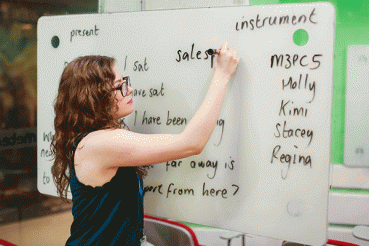 present
instrument
I sat
sales
M3PC5
have sat
Holly
I have been
Kimi
Stacey
far away is
Regina
part from here?